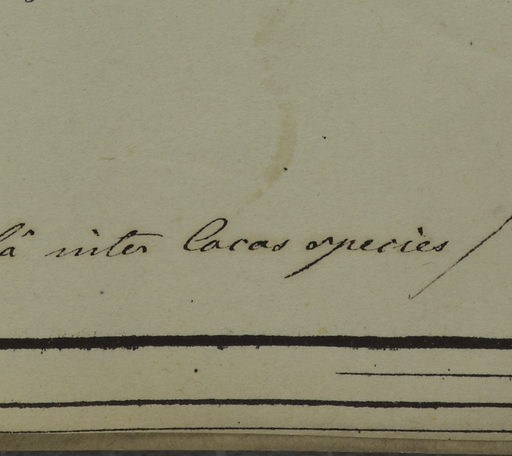 là inter Cocos species /